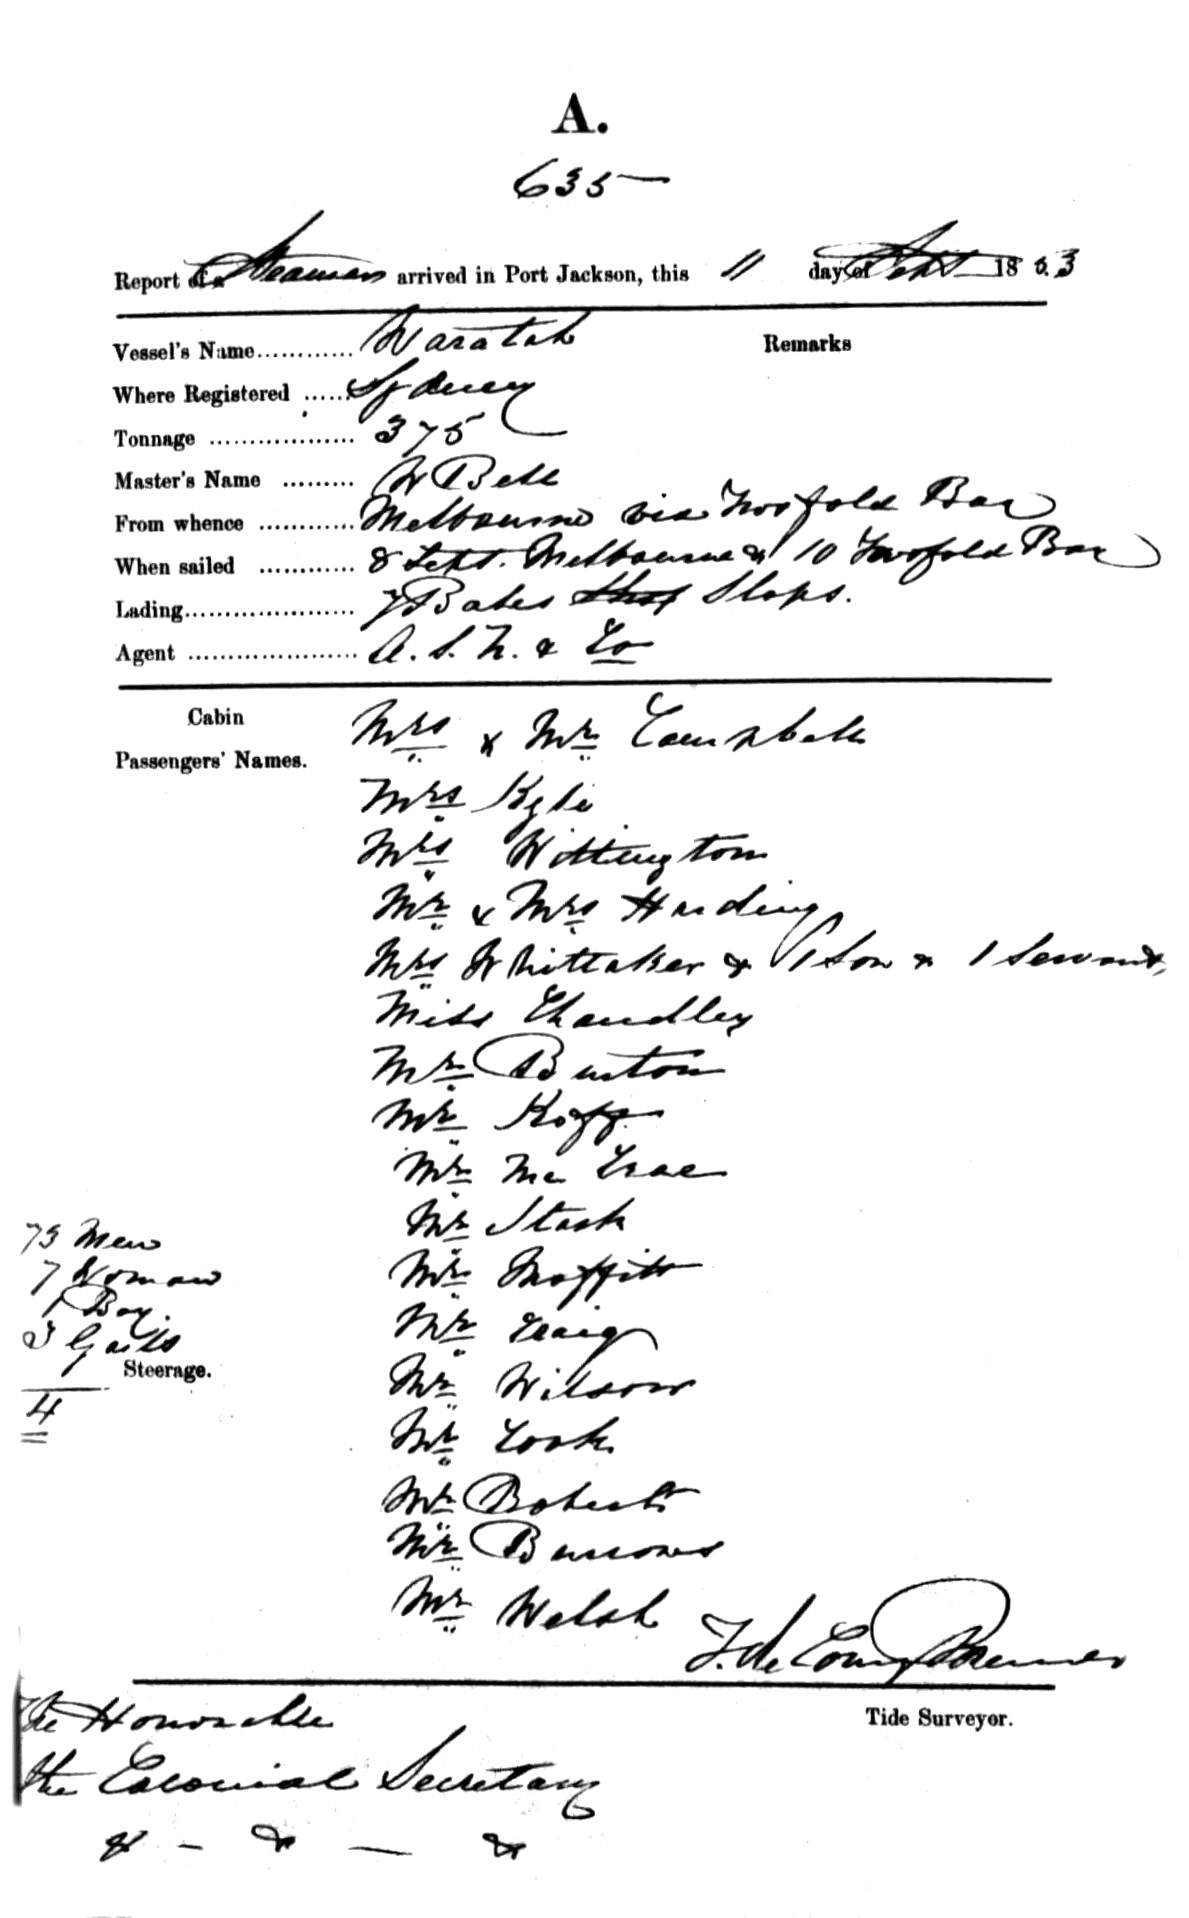 A.
635
Report of a Steamer arrived in Port Jackson, this 11 day of Sept 1853
Remarks
Vessel's Name............ Waratah
Where Registered ...... Sydney
Tonnage .................. 375
Master's Name ......... W Bell
From whence ............ Melbourne via Twofold Bay
When sailed ............ 8 Sept. Melbourne & 10 Twofold Bay
Lading..................... 7 Bales Slops.
Agent ..................... A. S. N. & Co
Cabin
Passengers' Names.
Mrs & Mr Campbell
Mrs Kyle
Mrs Wittington
Mr & Mrs Harding
Mrs Whittaker & 1 Son & 1 Servant
Miss Chandley
Mr Burton
Mr Kopp
Mr Mc Crae
Mr Stack
Mr Moffitt
Mr Craig
Mr Wilson
Mr Cook
Mr Roberts
Mr Burrows
Mr Welsh
73 Men
7 Woman
1 Boy.
3 Gails
Steerage.
4
Tide Surveyor.
The Honorable
the Colonial Secretary
& - & - &